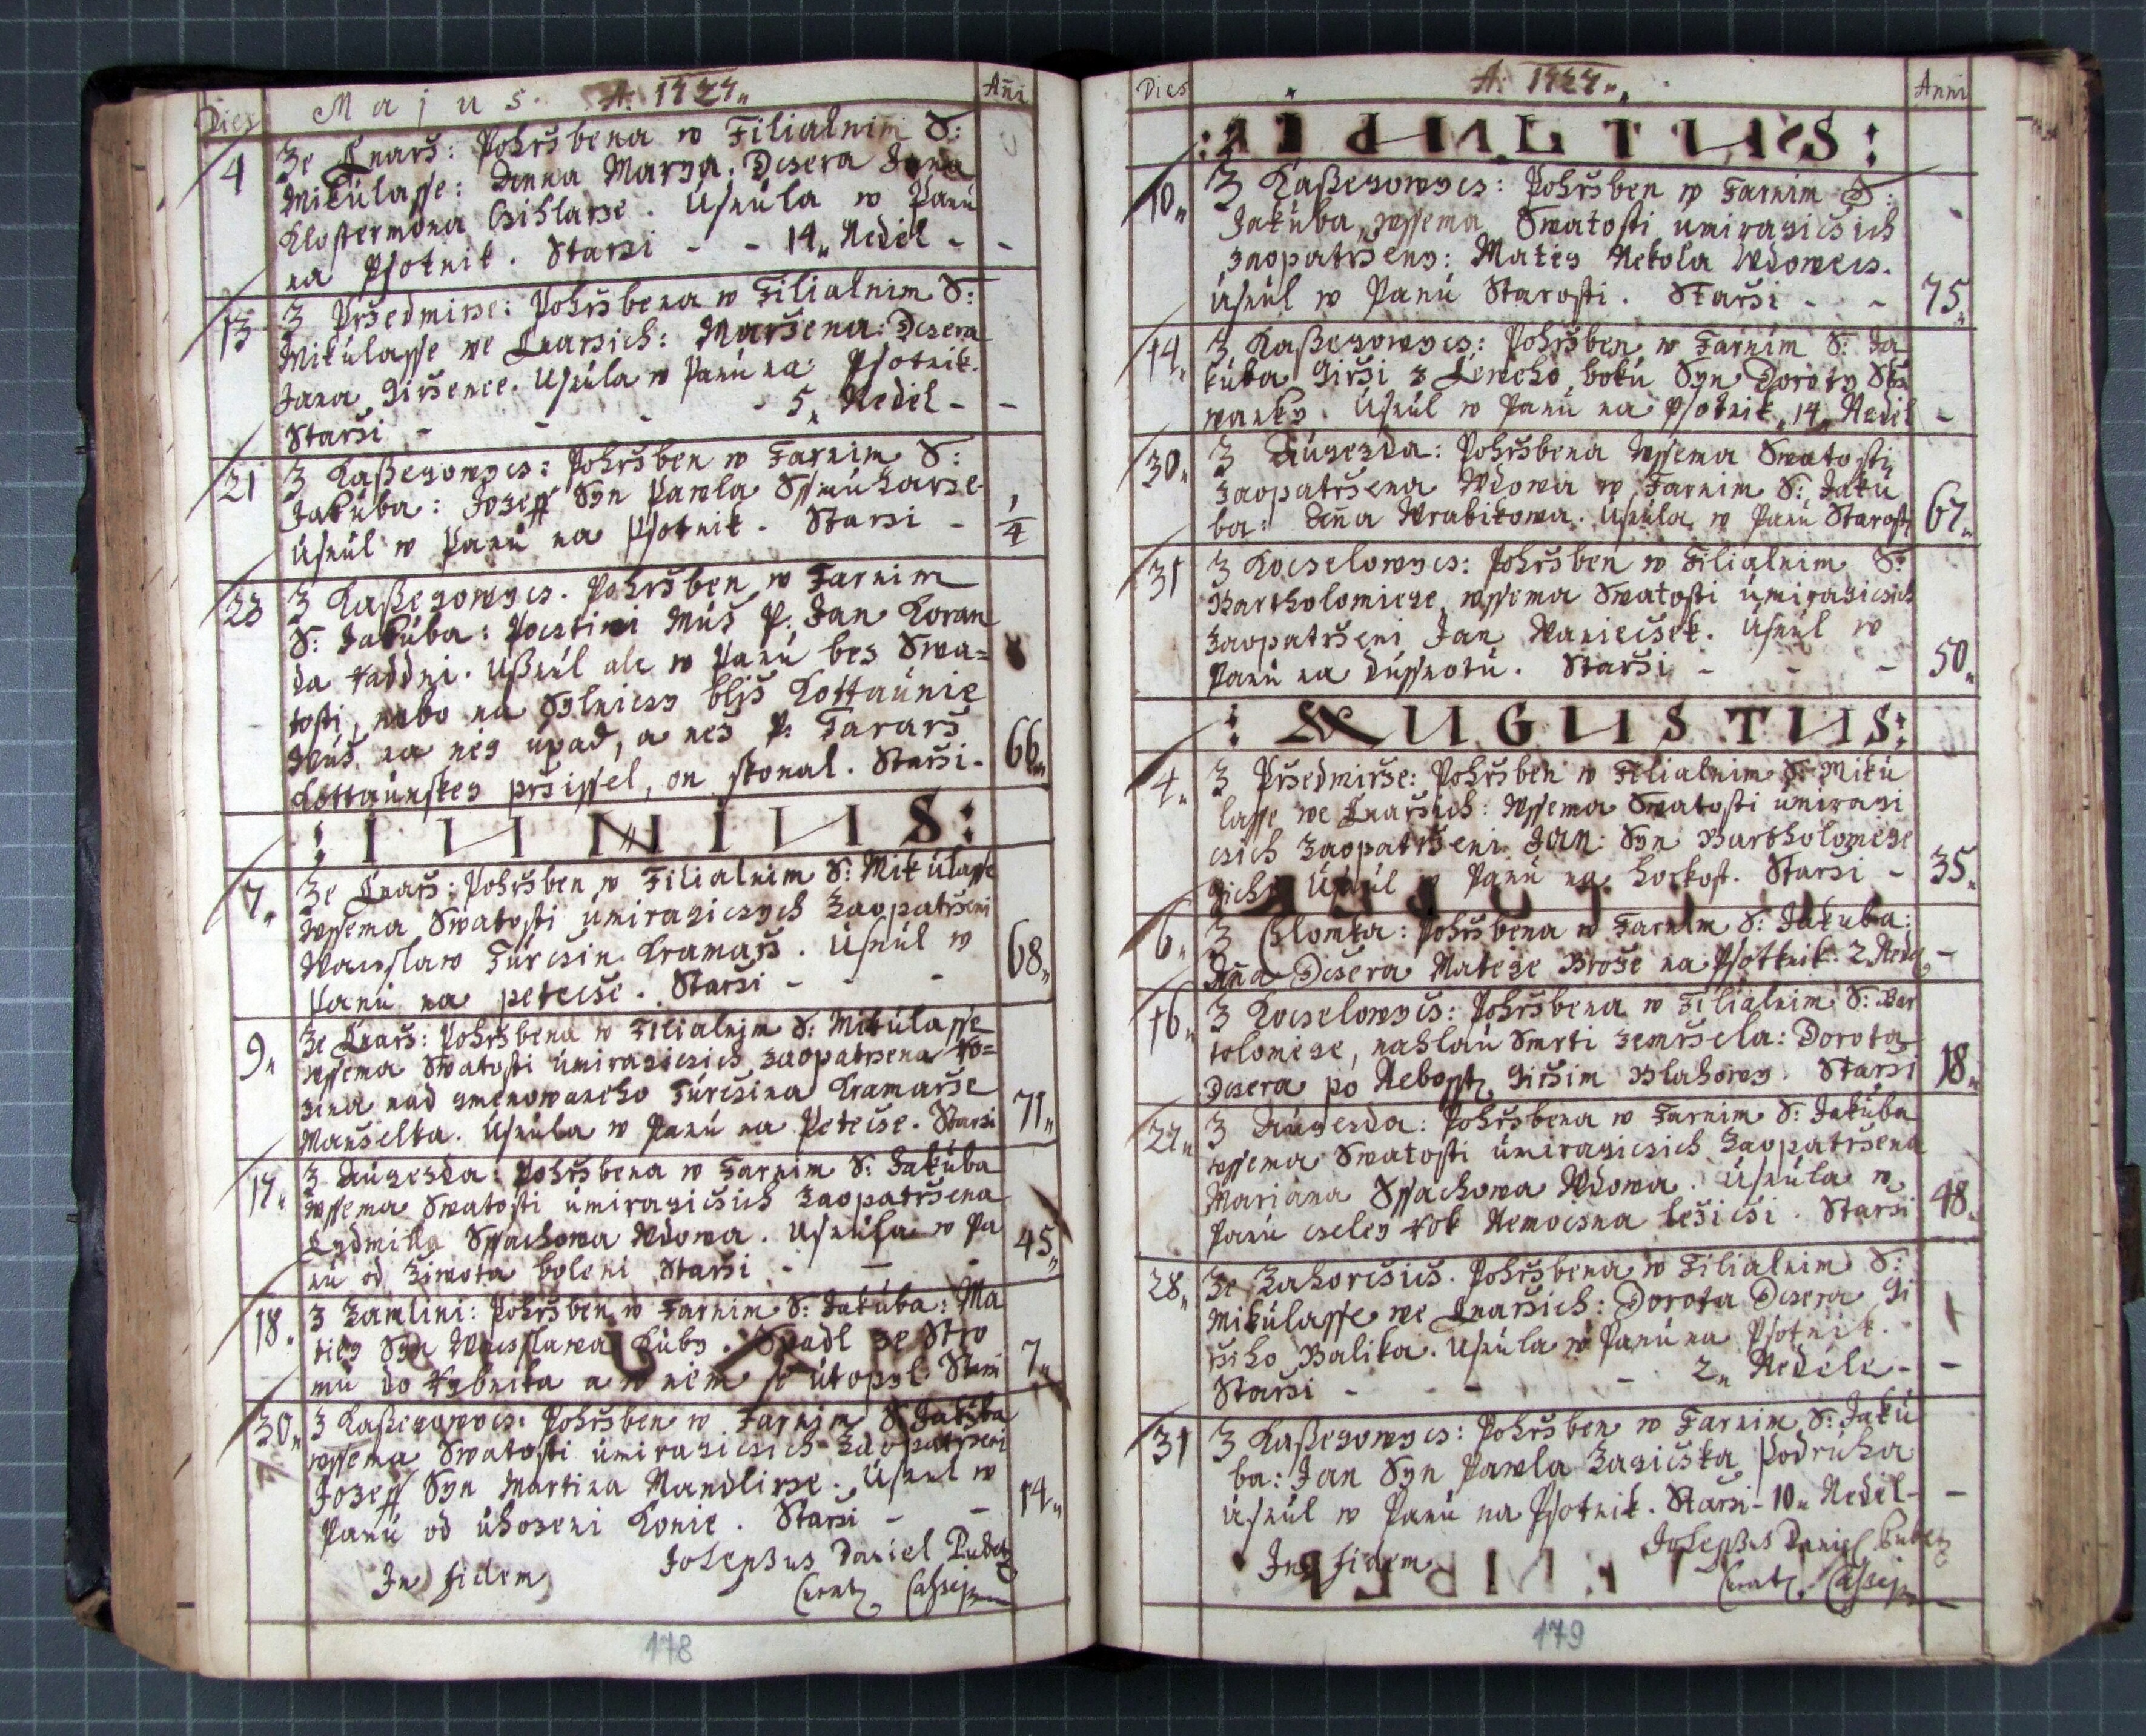 Dies Majus. A: 1727„ Añi
4 Ze Lnarš: Pohržbena w Filialnim S:
Mikulasse: Anna Marya. Dcsera Jana
Klostermona Csihlarže. Usnula w Panu
na Psotnik. Starsi - - 14„ Nedel - -
13 Z Pržedmirže: Pohržbena w Filialnim S:
Mikulasse we Lnaržich: Maržena: Dcsera
Jana Giržence. Usnula w Panu na Psotnik.
Starsi - - - - 5„ Nedel - -
21 Z Kaßegowycs: Pohržben w Farnim S:
Jakuba: Jozeff Syn Pawla Ssmuharže
Usnul w Panu na Psotnik. Starsi - 1/4
23 Z Kaßegowycs. Pohržben w Farnim
S: Jakuba: Pocstiwi Muž P: Jan Koran
da raddni. Ußnul ale w Panu bez Swa=
tosti, nebo na Sylnicsy bliž Kottaunie
Wuš na nég upad, a než P: Fararž
Kottaunskey pržissel, on skonal. Starsi - 66„
: IUNIUS:
7„ Ze Lnarž: Pohržben w Filialnim S: Mikulasse
wssema Swatosti umiragicsych Zaopatrženi
Wacslaw Turcsin Kramarž. Usnul w
Panu na petecse. Starsi - - - 68„
9„ Ze Lnarž: Pohržbena w Filialnim S: Mikulasse
wssema Swatosti umiragicsich zaopatržena ro=
zina nad gmenowaneho Turcsina Kramarže
Manželka. Usnula w Panu na Petecse. Starsi 71„
17„ Z Augezda: Pohržbena w Farnim S: Jakuba
wssema Swatosti umiragicsich Zaopatržena
Lydmilla Sspachowa Wdowa. Usnula w Pa
nu od Ziwota boleni Starsi - - - 45„
18„ Z Zamlini: Pohržben w Farnim S: Jakuba: Ma
tieg Syn Wacslawa Kuby. Spadl ze Stro
mu do rybnika a w nem se utopyl Starsi 7„
30„ Z Kaßegowycs: Pohržben w Farnim S: Jakuba
wssema Swatosti umiragicsich Zaopatrženi
Jozeff Syn Martina Mandlirže. Usnul w
Panu od uhozeni Konie. Starsi - - 14„
In fidem Josephus Daniel
178
Dies A: 1727„ Anni
: IULIUS:
10„ Z Kaßegowycs: Pohržben w Farnim S:
Jakuba, wssema Swatosti umiragicsich
zaopatrženy: Matég Nekola Wdowecs.
Usnul w Panu Starosti. Starsi - - 75„
14„ Z Kaßegowycs: Pohržben w Farnim S: Ja
kuba Girži z Leweho boku Syn Doroty
wanky. Usnul w Panu na Psotnik„ 14„ Nedel -
30„ Z Augezda: Pohržbena wssema Swatosti
Zaopatržena Wdowa w Farnim S: Jaku
ba: Aña Wrabikowa. Usnula w Panu Starosti 67„
31 Z Kocselowycs: Pohržben w Filialnim S:
Bartholomiege wssema Swatosti umiragicsich
Zaopatrženi Jan Waniecsek. Usnul w
Panu na dussnotu. Starsi - - - 50„
: AUGUSTUS:
4„ Z Pržedmirže: Pohržben w Filialnim S: Miku
lasse we Lnaržich: Wssema Swatosti umiragi
csich Zaopatrženi Jan: Syn Bartholomiege
Usnul w Panu na horkost. Starsi - 35„
6„ Z Chlomka: Pohržbena w Farnim S: Jakuba:
Aña Dcsera Matege Brože na Psotknik. 2 Nede -
16„ Z Kocselowycs: Pohržbena w Filialnim S: Bar
tolomiege, nahlau Smrti zemržela: Dorota
Dcsera po Neboss Giržim Blahowy. Starsi 18„
22„ Z Augezda: Pohržbena w Farnim S: Jakuba
wssema Swatosti umiragicsich Zaopatržena
Mariana Sspachowa Wdowa. Usnula w
Panu cseleg rok Nemocsna ležicsi. Starsi 48„
28„ Ze Zahorcsics. Pohržbena w Filialnim S:
Mikulasse we Lnaržich: Dorota Dcsera Gi
ržiho Balika. Usnula w Panu na Psotnik.
Starsi - - - 2„ Nedele - -
31 Z Kaßegowycs: Pohržben w Farnim S: Jaku
ba: Jan Syn Pawla Zagicška Podruha
Usnul w Panu na Psotnik. Starsi - 10„ Nedel - -
In fidem Josephus Daniel
179